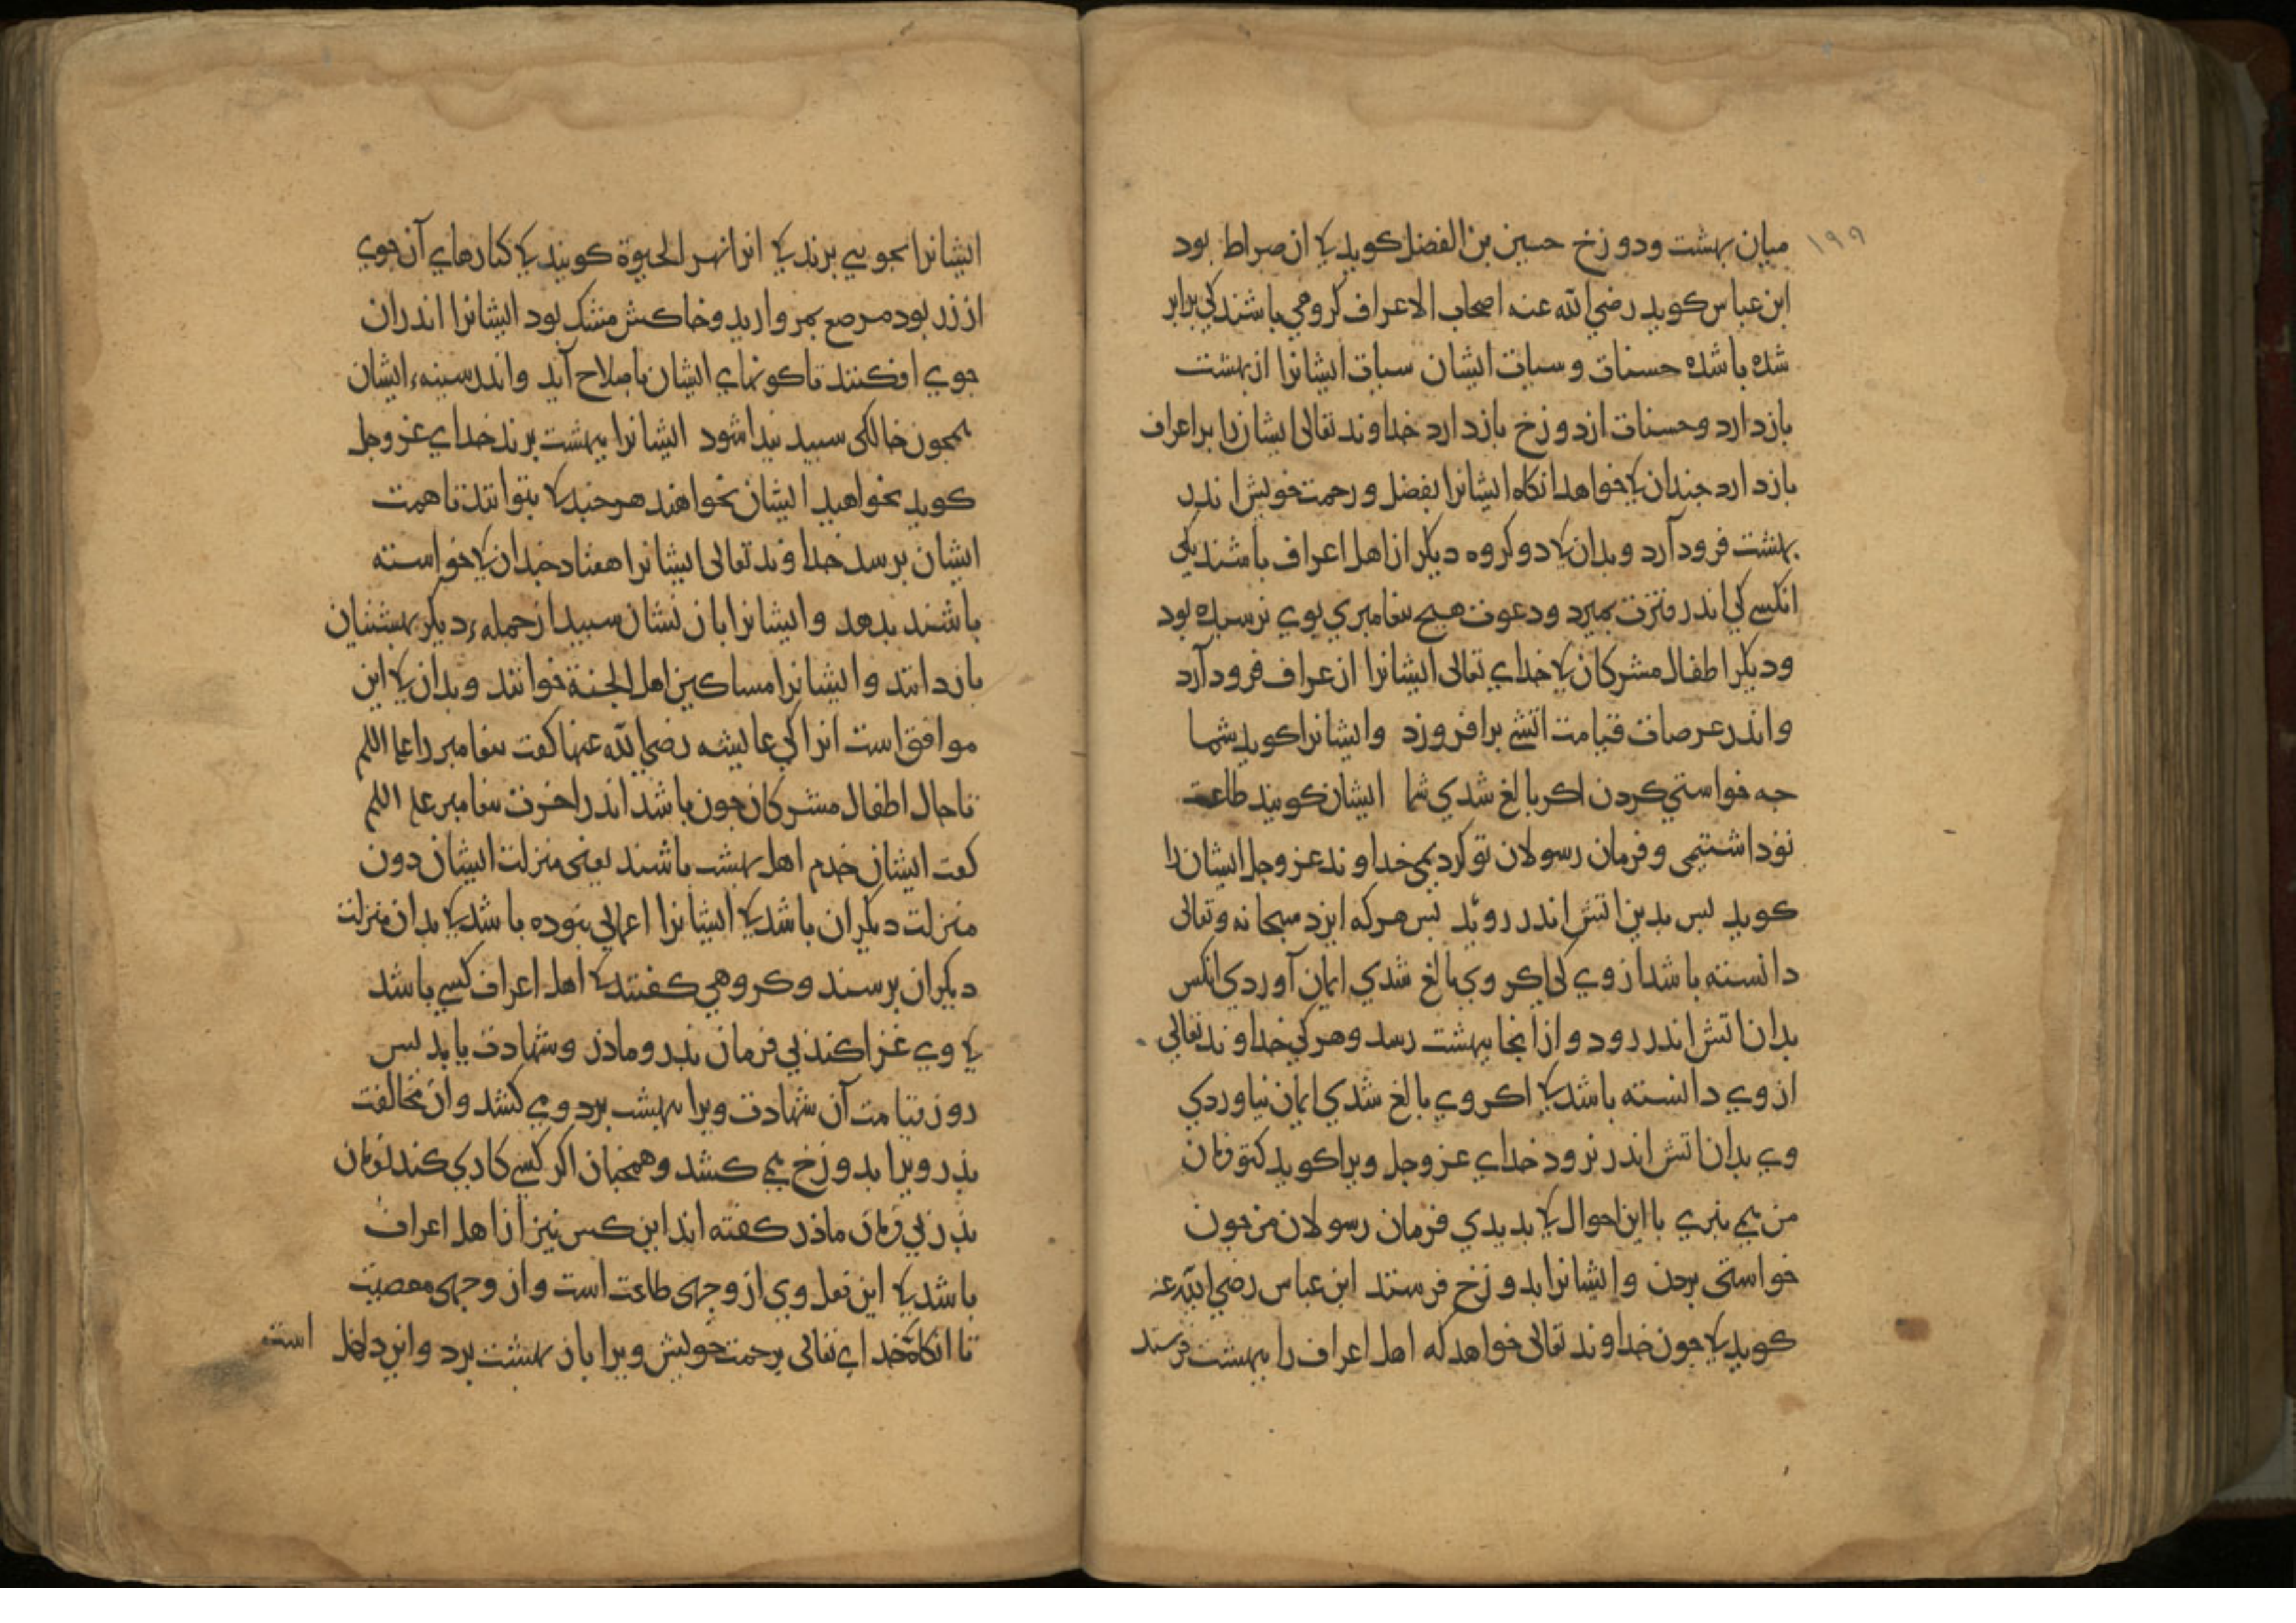 ۱۹۹
میان بهشت ودوزخ حسین بن الفضل کوید کی ان صراط بود
ابن عباس کوید رضي الله عنه اصحاب الاعراف کروهي باشند کي برابر
شده باشد حسنات وسیات ایشان سیات ایشانرا از بهشت
بازدارد وحسنات از دوزخ بازدارد خداوند تعالی ایشان را بر اعراف
بازدارد جندان کی خواهد انکاه ایشانرا بفضل ورحمت خویش اندر
بهشت فرود آرد وبدان کی دو کروه دیکر از اهل اعراف باشند یکی
انکسي کي اندر فترت بمیرد ودعوت هیج بیغامبري بوي نرسیده بود
ودیکر اطفال مشرکان کی خداي تعالی ایشانرا از عراف فرود آرد
واندر عرصات قیامت اتشي برافروزد وایشانرا کوید شما
جه خواستي کردن اکر بالغ شدي شما ایشان کویند طاعت
تو داشتیمی وفرمان رسولان تو کردیمی خداوند عزوجل ایشان را
کوید بس بدین اتش اندر روید بس هرکه ایزد سبحانه وتعالی
دانسته باشد از وي کی اکر وي بالغ شدي ایمان آوردي انکس
بدان اتش اندر رود وازانجا ببهشت رسد وهر کي خداوند تعالي
از وي دانسته باشد کی اکر وي بالغ شدي ایمان نیاوردي
وي بدان اتش اندر نرود خداي عزوجل ویرا کوید کتو فرمان
من می نبري با این احوال کی بدیدي فرمان رسولان من جون
خواستی بردن وایشانرا بدوزخ فرستد ابن عباس رضي الله عنه
کوید کی جون خداوند تعالی خواهد که اهل اعراف را ببهشت فرستد
ایشانرا بجویي برند کی انرا نهر الحیوة کویند کی کنارهاي آن جوي
از زر بود مرصع بمروارید وخاکش مشک بود ایشانرا اندران
جوي افکنند تا کونهاي ایشان باصلاح آید واندر سینهء ایشان
همجون خالکی سبید بیدا شود ایشانرا ببهشت برند خداي عزوجل
کوید بخواهید ایشان بخواهند هرجند کی بتوانند تا همت
ایشان برسد خداوند تعالی ایشانرا هفتاد جندان کی خواسته
باشند بدهد وایشانرا بان نشان سبید از جملهء دیکر بهشتیان
بازدانند وایشانرا مساکین اهل الجنة خوانند وبدان کی این
موافق است انرا کي عایشه رضي الله عنها کفت بیغامبر را علیه السلم
تا حال اطفال مشرکان جون باشد اندر اخرت بیغامبر علیه السلم
کفت ایشان خدم اهل بهشت باشند یعنی منزلت ایشان دون
منزلت دیکران باشد کی ایشانرا اعمالي نبوده باشد کی بدان منزلت
دیکران برسند وکروهي کفتند کی اهل اعراف کسي باشد
کی وي غزا کند بي فرمان بدر ومادر وشهادت یابد بس
روز قیامت آن شهادت ویرا ببهشت برد ومی کشد وان مخالفت
بدر ویرا بدوزخ می کشد وهمجنان اکر کسي کاري کند بفرمان
بدر بي فرمان ماذر کفته اند این کس نیز از اهل اعراف
باشد کی این فعل وي از وجهی طاعت است واز وجهی معصیت
تا انکاه خداي تعالی برحمت خویش ویرا بان بهشت برد وایزد داخل است